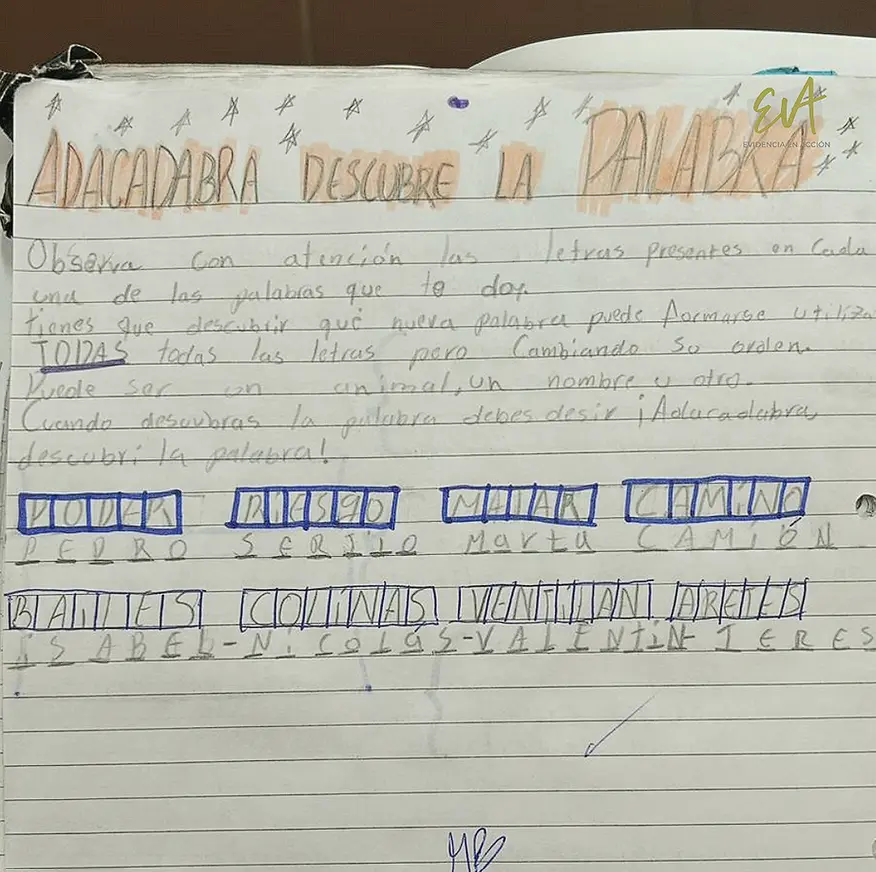 EVA
EVIDENCIA EN ACCIÓN
ADACADABRA DESCUBRE LA PALABRA
Observa con atención las letras presentes en cada
una de las palabras que te doy.
tienes que descubrir qué nueva palabra puede formarse utiliza
TODAS todas las letras pero Cambiando su orden.
Puede ser un animal, un nombre u otro.
Cuando descubras la palabra debes desir ¡Adacadabra
descubrí la palabra!
PODER RiESgO MATAR CAMiNO
PEDRO SERJIO Marta CAMiÓN
BAILES COLiNAS VENTILAN ARETES
iSABEL-NiCOLáS-VALENTiN TERES